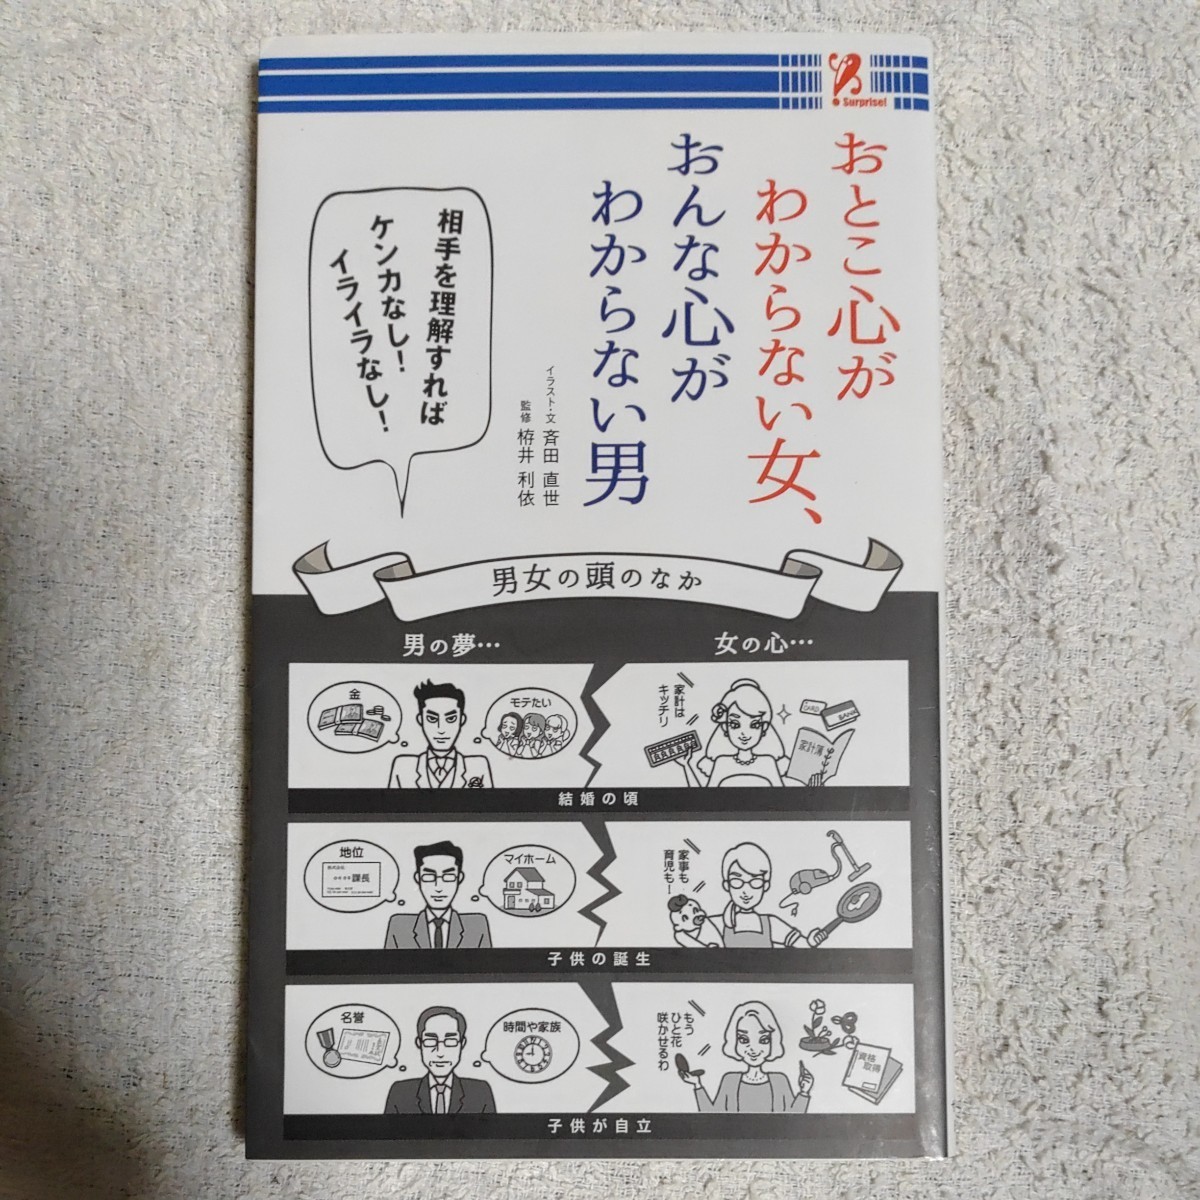 Surprise!
おとこ心が
わからない女、
おんな心が
わからない男
イラスト・文 斉田 直世
監修 栫井 利依
相手を理解すれば
ケンカなし!
イライラなし!
男女の頭のなか
男の夢…
女の心…
金
モテたい
家計は
キッチリ
CARD
BANK
家計簿
結婚の頃
地位
課長
マイホーム
家事も
育児も!
子供の誕生
名誉
時間や家族
もう
ひと花
咲かせるわ
資格
取得
子供が自立